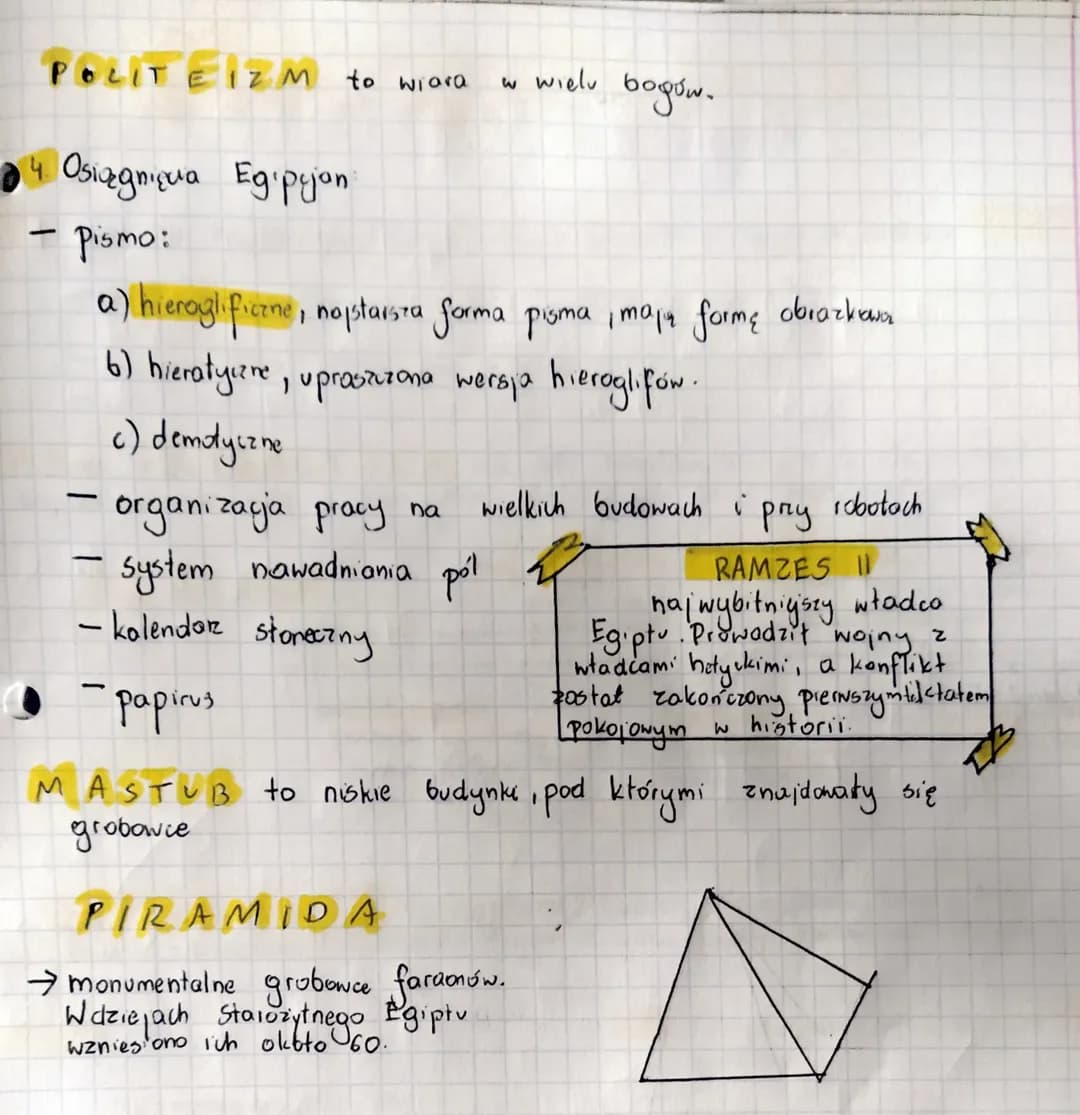 POLITEIZM to wiara w wielu bogów.
4. Osiągnięcia Egipcjan:
- pismo:
a) hieroglificzne, najstarsza forma pisma, mają formę obrazkową
b) hieratyczne, uproszczona wersja hieroglifów.
c) demotyczne
- organizacja pracy na wielkich budowach i przy robotach
- system nawadniania pól
- kalendarz słoneczny
- papirus
RAMZES II
najwybitniejszy władca
Egiptu. Prowadził wojny z
władcami hetyckimi, a konflikt
został zakończony pierwszym traktatem
pokojowym w historii.
MASTUB to niskie budynki, pod którymi znajdowały się
grobowce
PIRAMIDA
→ monumentalne grobowce faraonów.
W dziejach Starożytnego Egiptu
wzniesiono ich około 60.